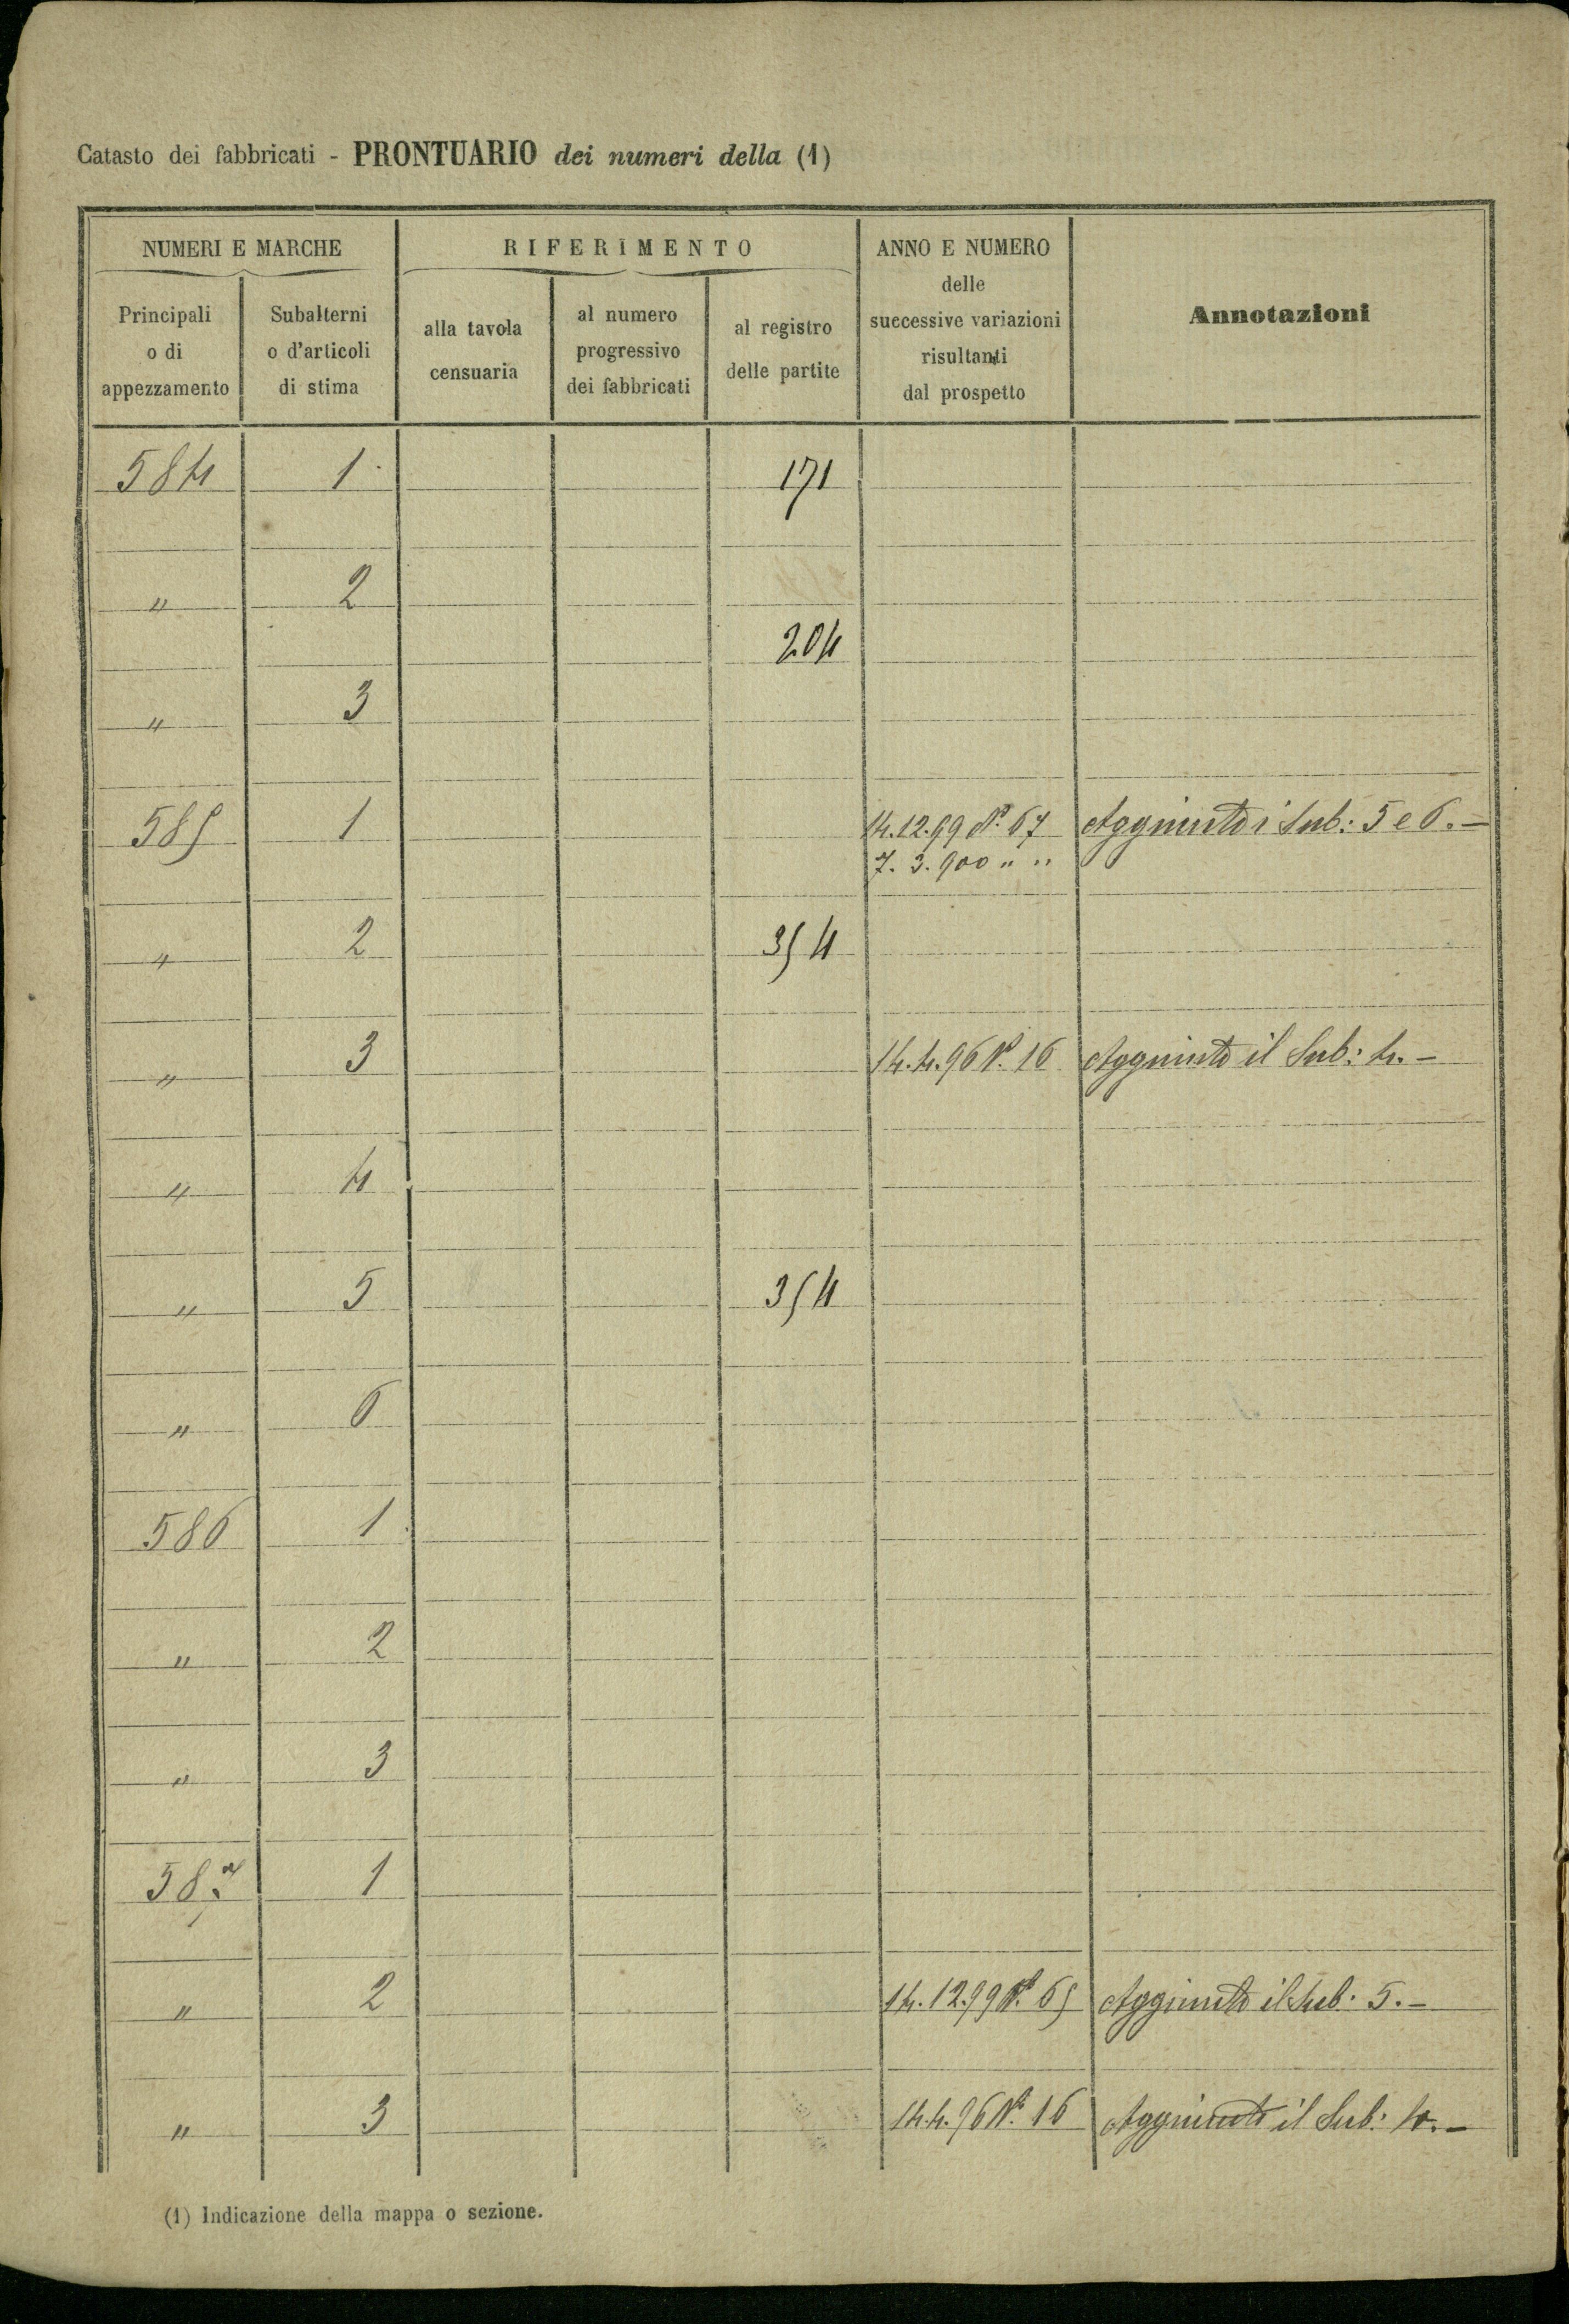 Catasto dei fabbricati - PRONTUARIO dei numeri della (1)
NUMERI E MARCHE
RIFERIMENTO
ANNO E NUMERO
delle
successive variazioni
risultanti
dal prospetto
Annotazioni
Principali
o di
appezzamento
Subalterni
o d'articoli
di stima
alla tavola
censuaria
al numero
progressivo
dei fabbricati
al registro
delle partite
584 1 171
" 2
204
" 3
585 1 14.12.99 N.° 67 Aggiunto i Sub: 5 e 6. -
7. 3. 900 " "
" 2 354
" 3 14.4.96 N.° 16 Aggiunto il Sub: 4. -
" 4
" 5 354
" 6
586 1
" 2
" 3
587 1
" 2 14.12.99 N.° 65 Aggiunto il Sub: 5. -
" 3 14.4.96 N.° 16 Aggiunto il Sub: 4. -
(1) Indicazione della mappa o sezione.